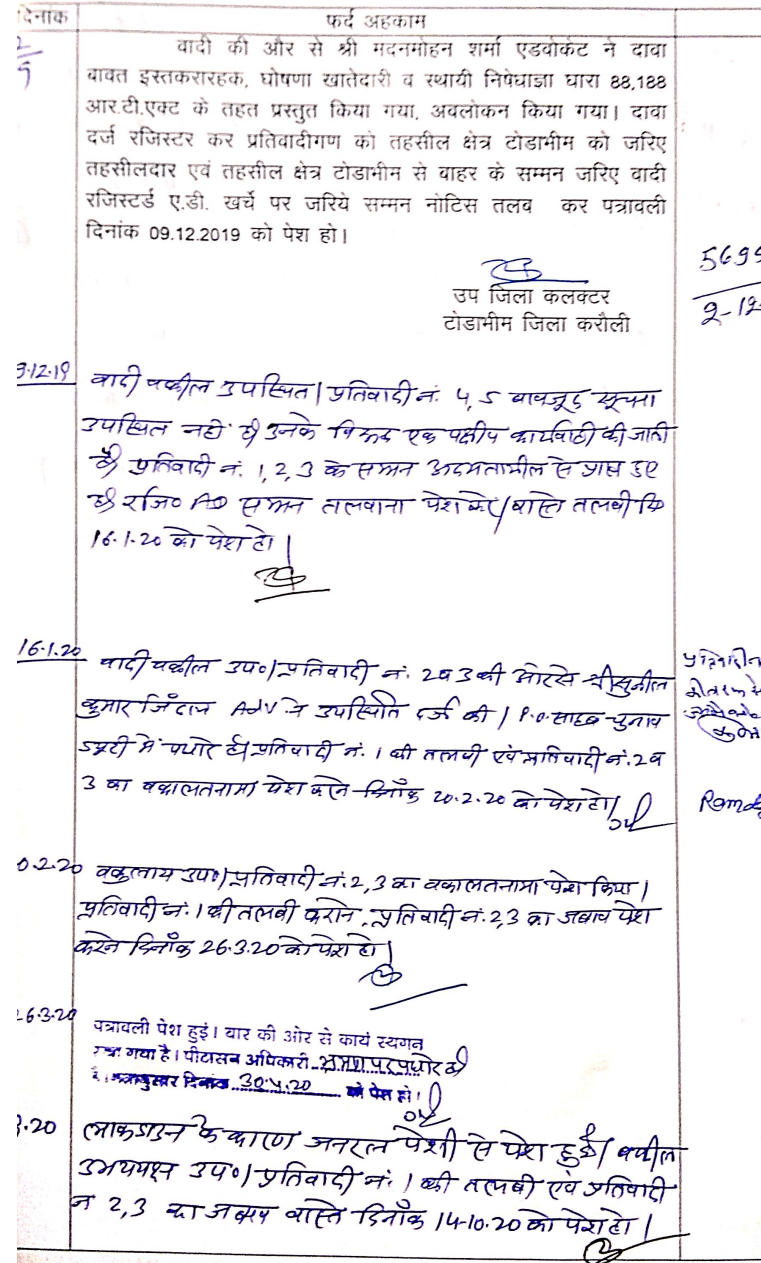 दिनांक फर्द अहकाम
वादी की और से श्री मदनमोहन शर्मा एडवोकेट ने दावा
बावत इस्तकरारहक, घोषणा खातेदारी व स्थायी निषेधाज्ञा धारा 88,188
आर.टी.एक्ट के तहत प्रस्तुत किया गया, अवलोकन किया गया। दावा
दर्ज रजिस्टर कर प्रतिवादीगण को तहसील क्षेत्र टोडाभीम को जरिए
तहसीलदार एवं तहसील क्षेत्र टोडाभीम से बाहर के सम्मन जरिए वादी
रजिस्टर्ड ए.डी. खर्चे पर जरिये सम्मन नोटिस तलब कर पत्रावली
दिनांक 09.12.2019 को पेश हो।
उप जिला कलक्टर
टोडाभीम जिला करौली
9.12.19 वादी वकील उपस्थित। प्रतिवादी नं. 4, 5 बावजूद सूचना
उपस्थित नहीं है। उनके विरूद्ध एक पक्षीय कार्यवाही की जाती
है। प्रतिवादी नं. 1, 2, 3 के सम्मन अदमतामील से प्राप्त हुए
है। रजि० AD सम्मन तलवाना पेश करे। वास्ते तलबी दि
16.1.20 को पेश हो।
16.1.20 वादी वकील उप०। प्रतिवादी नं. 2 व 3 की ओर से श्री सुनील
कुमार जिंदल Adv ने उपस्थिति दर्ज की। P.O. साहब चुनाव
ड्यूटी में पधारे है। प्रतिवादी नं. 1 की तलबी एवं प्रतिवादी नं. 2 व
3 का वकालतनामा पेश करने दिनाँक 20.2.20 को पेश हो।
0.2.20 वकुलाय उप०। प्रतिवादी नं. 2, 3 का वकालतनामा पेश किया।
प्रतिवादी नं. 1 की तलबी कराने, प्रतिवादी नं. 2, 3 का जबाव पेश
करने दिनाँक 26.3.20 को पेश हो।
26.3.20 पत्रावली पेश हुई। बार की ओर से कार्य स्थगन
गया है। पीठासन अधिकारी
दिनांक 30.4.20 को पेश हो।
.20 लाकडाउन के कारण जनरल पेशी से पेश हुई। वकील
उभयपक्ष उप०। प्रतिवादी नं. 1 की तलबी एवं प्रतिवादी
नं 2, 3 का जबाव वास्ते दिनाँक 14-10-20 को पेश हो।